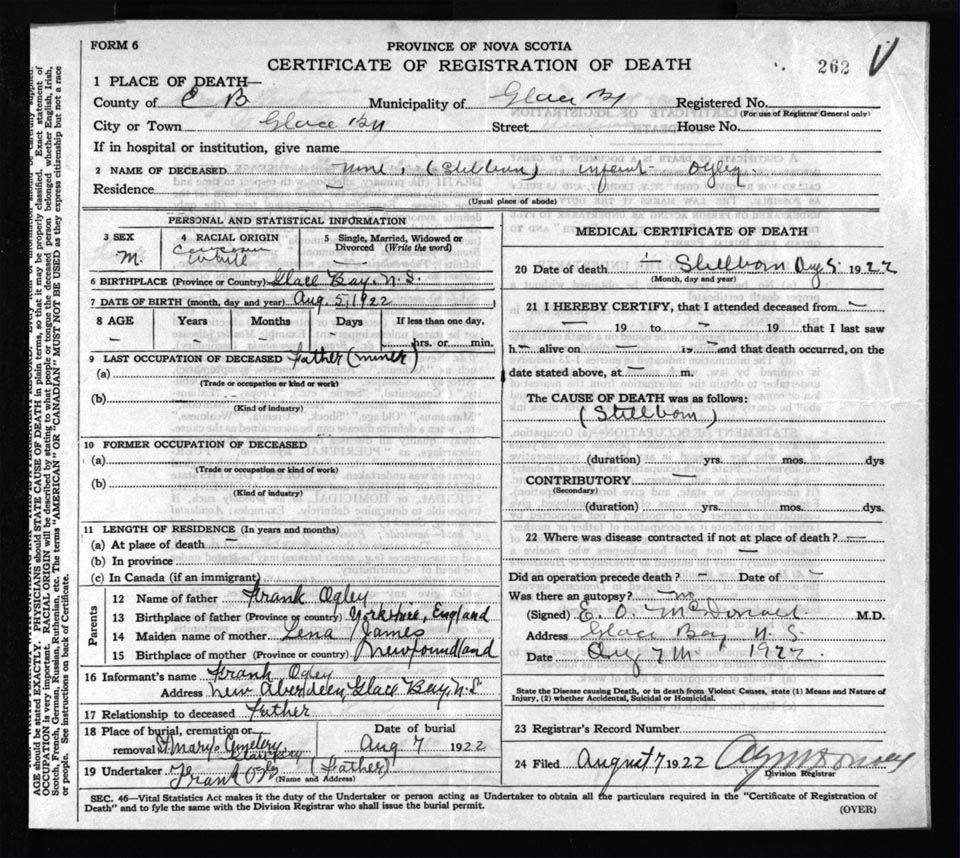 FORM 6
PROVINCE OF NOVA SCOTIA
CERTIFICATE OF REGISTRATION OF DEATH
262 V
1 PLACE OF DEATH—
County of C B Municipality of Glace By Registered No.
(For use of Registrar General only)
City or Town Glace By Street House No.
If in hospital or institution, give name
2 NAME OF DECEASED none, (Stillborn) infant Ogley
Residence —
(Usual place of abode)
PERSONAL AND STATISTICAL INFORMATION
3 SEX
M.
4 RACIAL ORIGIN
White
5 Single, Married, Widowed or Divorced (Write the word)
—
6 BIRTHPLACE (Province or Country) Glace Bay, N.S.
7 DATE OF BIRTH (month, day and year) Aug 5, 1922
8 AGE Years Months Days If less than one day,
— — — hrs. or min.
9 LAST OCCUPATION OF DECEASED father (miner)
(a)
(Trade or occupation or kind or work)
(b)
(Kind of industry)
10 FORMER OCCUPATION OF DECEASED
(a)
(Trade or occupation or kind of work)
(b)
(Kind of industry)
11 LENGTH OF RESIDENCE (In years and months)
(a) At place of death —
(b) In province
(c) In Canada (if an immigrant)
Parents
12 Name of father Frank Ogley
13 Birthplace of father (Province or country) Yorkshire, England
14 Maiden name of mother Lena James
15 Birthplace of mother (Province or country) Newfoundland
16 Informant's name Frank Ogley
Address New Aberdeen, Glace Bay, N.S.
17 Relationship to deceased Father
18 Place of burial, cremation or removal St. Mary's Cemetery Glace Bay
Date of burial
Aug 7 1922
19 Undertaker Frank Ogley (Father)
(Name and Address)
MEDICAL CERTIFICATE OF DEATH
20 Date of death — Stillborn Aug 5. 1922
(Month, day and year)
21 I HEREBY CERTIFY, that I attended deceased from —
— 19 to — 19 that I last saw
h— alive on — 19 — and that death occurred, on the
date stated above, at — m.
The CAUSE OF DEATH was as follows:
(Stillborn)
(duration) yrs. mos. dys
CONTRIBUTORY —
(Secondary)
(duration) yrs. mos. dys.
22 Where was disease contracted if not at place of death? —
—
Did an operation precede death? — Date of —
Was there an autopsy? no
(Signed) E. O. McDonald M.D.
Address Glace Bay N.S.
Date Aug 7th 1922
State the Disease causing Death, or in death from Violent Causes, state (1) Means and Nature of
Injury, (2) whether Accidental, Suicidal or Homicidal.
23 Registrar's Record Number
24 Filed August 7 1922
Division Registrar
SEC. 46—Vital Statistics Act makes it the duty of the Undertaker or person acting as Undertaker to obtain all the particulars required in the "Certificate of Registration of
Death" and to fyle the same with the Division Registrar who shall issue the burial permit.
(OVER)
AGE should be stated EXACTLY. PHYSICIANS should STATE CAUSE OF DEATH in plain terms, so that it may be properly classified. Exact statement of
OCCUPATION is very important. RACIAL ORIGIN will be described by stating to what people or tongue the deceased person belonged whether English, Irish,
Scotch, French, German, Russian, Ruthenian, etc. The terms "AMERICAN" OR "CANADIAN" MUST NOT BE USED as they express citizenship but not a race
or people. See instructions on back of Certificate.